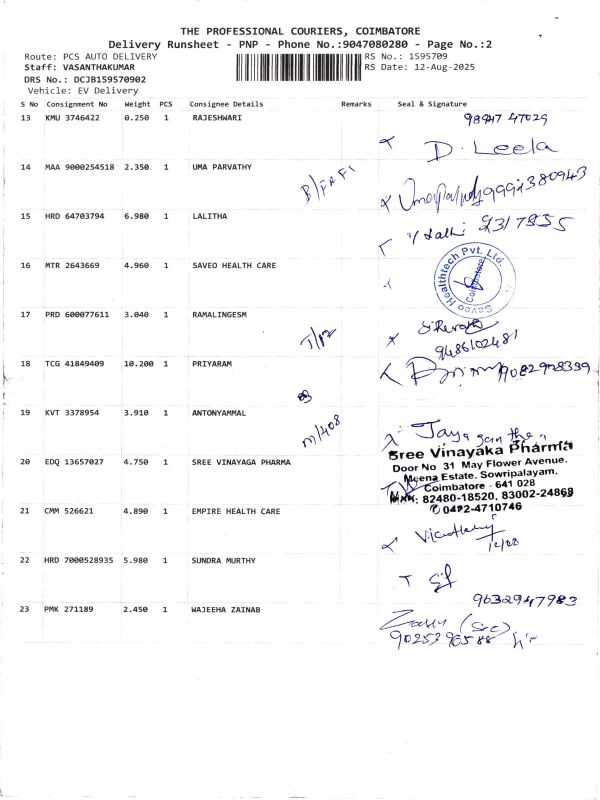 THE PROFESSIONAL COURIERS, COIMBATORE
Delivery Runsheet - PNP - Phone No.:9047080280 - Page No.:2
Route: PCS AUTO DELIVERY
Staff: VASANTHAKUMAR
DRS No.: DCJB159570902
Vehicle: EV Delivery
RS No.: 1595709
RS Date: 12-Aug-2025
S No Consignment No Weight PCS Consignee Details Remarks Seal & Signature
13 KMU 3746422 0.250 1 RAJESHWARI
98947 47029
D. Leela
14 MAA 9000254518 2.350 1 UMA PARVATHY
15 HRD 64703794 6.980 1 LALITHA
16 MTR 2643669 4.960 1 SAVEO HEALTH CARE
Saveo Healthtech Pvt. Ltd.
Coimbatore
17 PRD 600077611 3.040 1 RAMALINGESM
9486102481
18 TCG 41849409 10.200 1 PRIYARAM
19 KVT 3378954 3.910 1 ANTONYAMMAL
M/408
20 EDQ 13657027 4.750 1 SREE VINAYAGA PHARMA
Sree Vinayaka Pharma
Door No 31 May Flower Avenue,
Meena Estate, Sowripalayam,
Coimbatore - 641 028
82480-18520, 83002-24869
0422-4710746
21 CMM 526621 4.890 1 EMPIRE HEALTH CARE
12/08
22 HRD 7000528935 5.980 1 SUNDRA MURTHY
9632947983
23 PMK 271189 2.450 1 WAJEEHA ZAINAB